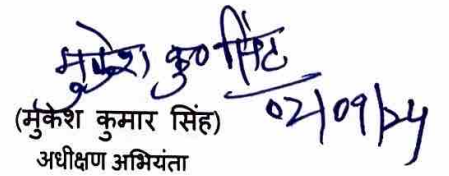 मुकेश कु० सिंह
02/09/24
(मुंकेश कुमार सिंह)
अधीक्षण अभियंता